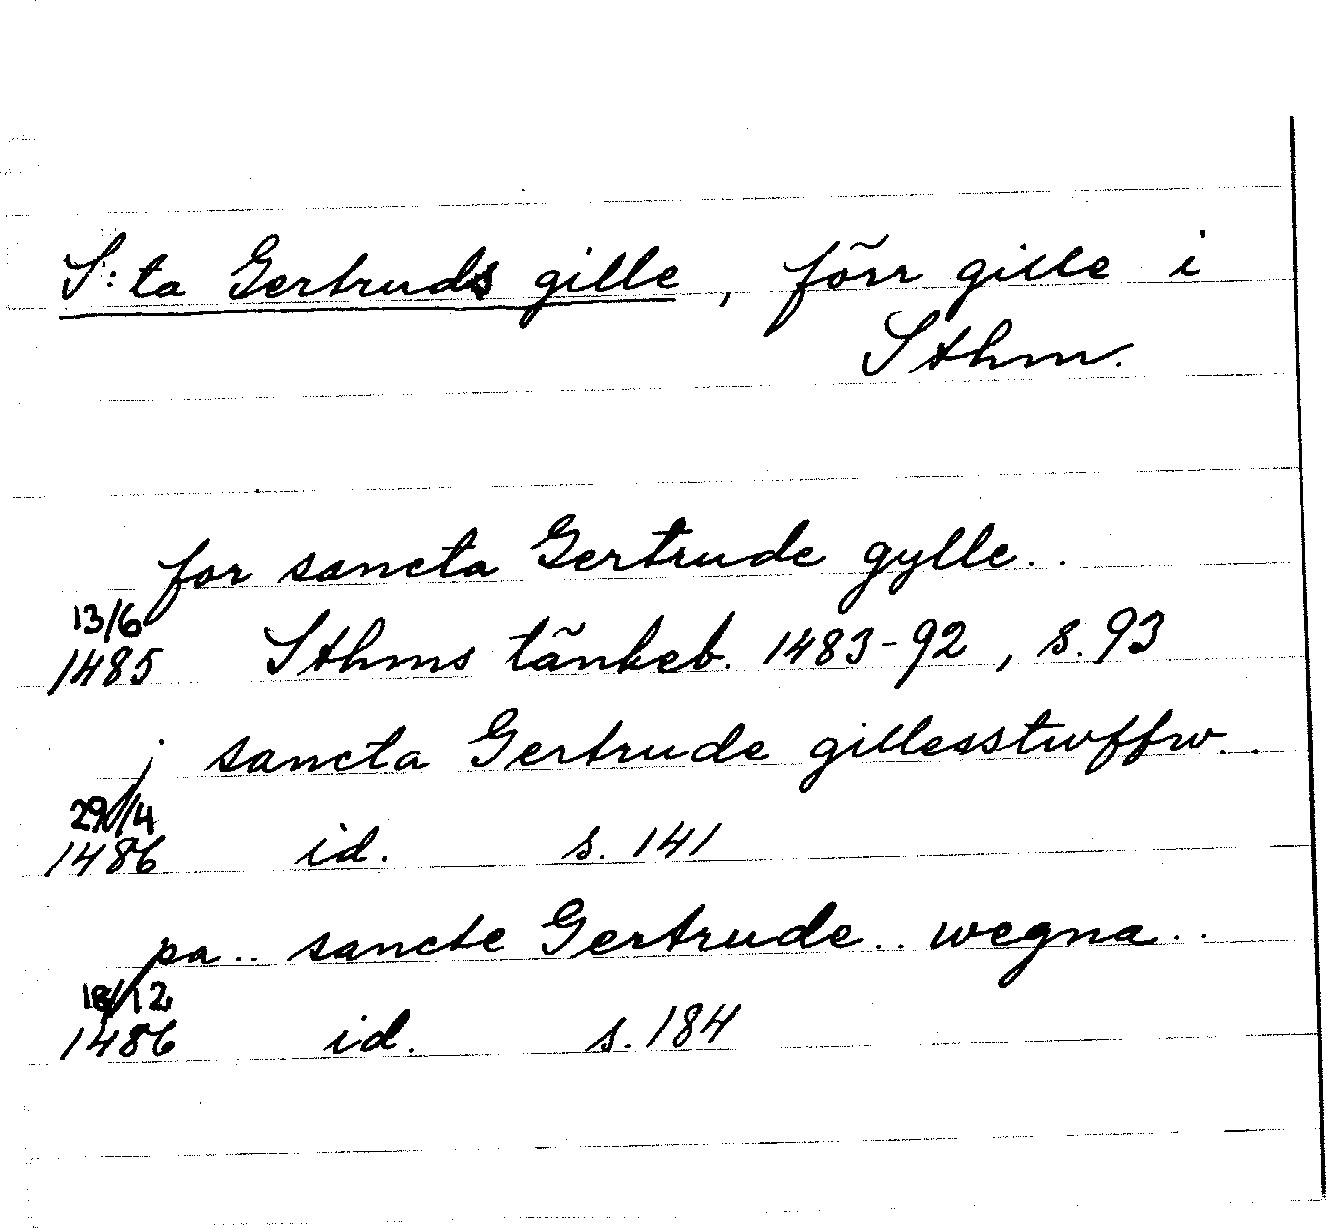 S:ta Gertruds gille, förr gille i
Sthm.
for sancta Gertrude gylle..
13/6
1485 Sthms tänkeb. 1483-92, s. 93
j sancta Gertrude gillesstwffw..
29/4
1486 id. s. 141
pa.. sancte Gertrude.. wegna..
18/12
1486 id. s. 184